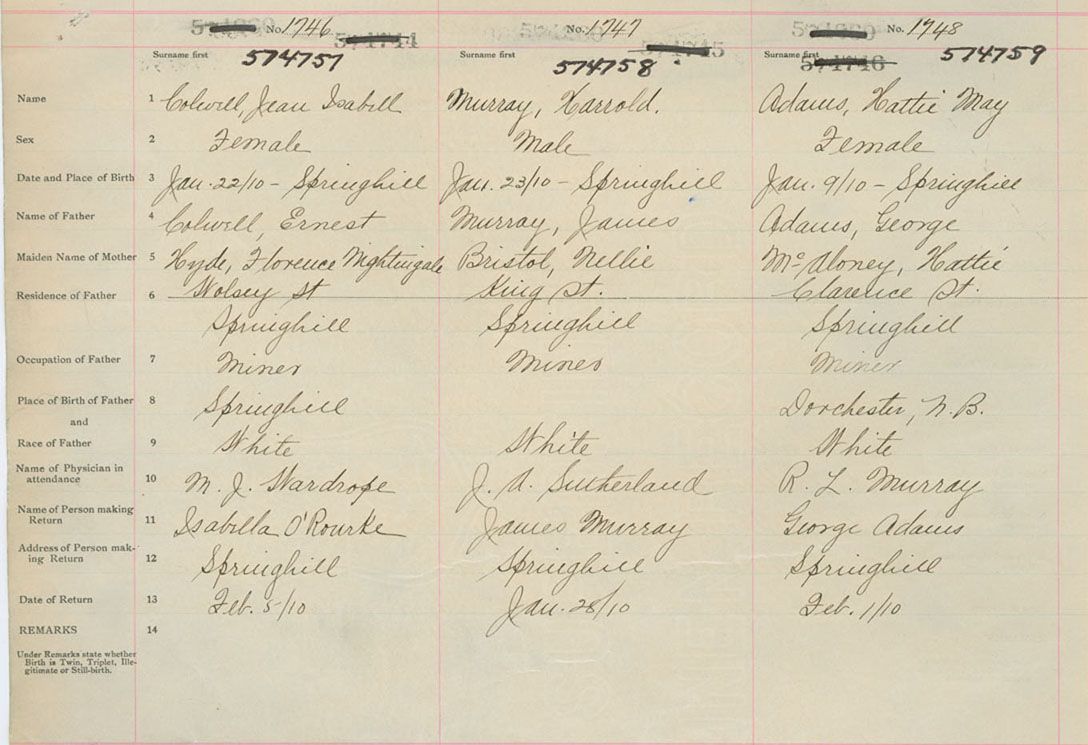 No. 1746 No. 1747 No. 1748
Surname first 574757 Surname first 574758 Surname first 574759
Name 1 Colwill, Jean Isabill Murray, Harrold. Adams, Hattie May
Sex 2 Female Male Female
Date and Place of Birth 3 Jan. 22/10 - Springhill Jan. 23/10 - Springhill Jan. 9/10 - Springhill
Name of Father 4 Colwill, Ernest Murray, James Adams, George
Maiden Name of Mother 5 Hyde, Florence Nightingale Bristol, Nellie McAloney, Hattie
Residence of Father 6 Wolsey St King St. Clarence St.
Springhill Springhill Springhill
Occupation of Father 7 Miner Miner Miner
Place of Birth of Father 8 Springhill Dorchester, N.B.
and
Race of Father 9 White White White
Name of Physician in
attendance 10 M. J. Wardrope J. A. Sutherland R. L. Murray
Name of Person making
Return 11 Isabilla O'Rourke James Murray George Adams
Address of Person mak-
ing Return 12 Springhill Springhill Springhill
Date of Return 13 Feb. 5/10 Jan. 28/10 Feb. 1/10
REMARKS 14
Under Remarks state whether
Birth is Twin, Triplet, Ille-
gitimate or Still-birth.